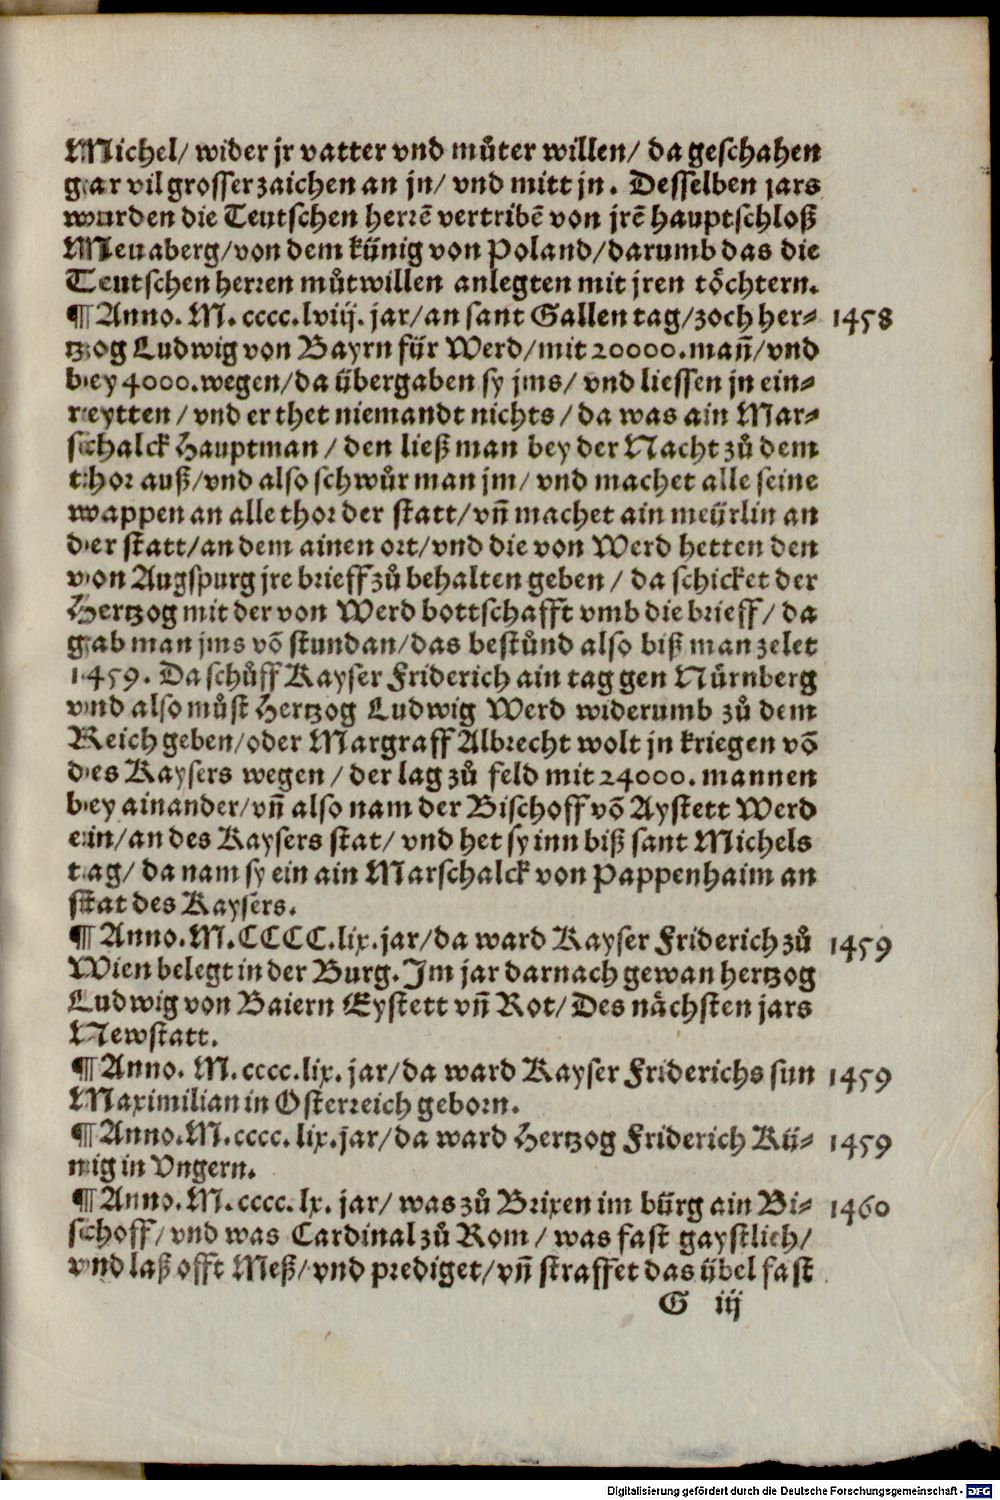 Michel/ wider jr vatter vnd můter willen/ da geschahen
gar vil grosser zaichen an jn/ vnd mitt jn. Desselben jars
wurden die Teutschen herrē vertribē von jrē hauptschloß
Meuaberg/von dem künig von Poland/darumb das die
Teutschen herren můtwillen anlegten mit jren töchtern.
¶ Anno. M. cccc.lviij. jar/an sant Gallen tag/zoch her- 1458
tzog Ludwig von Bayrn für Werd/mit 20000.mañ/vnd
bey 4000.wegen/da übergaben sy jms/ vnd liessen jn ein-
reytten/ vnd er thet niemandt nichts/ da was ain Mar-
schalck Hauptman/ den ließ man bey der Nacht zů dem
thor auß/vnd also schwůr man jm/ vnd machet alle seine
wappen an alle thor der statt/vñ machet ain meürlin an
der statt/an dem ainen ort/vnd die von Werd hetten den
von Augspurg jre brieff zů behalten geben/ da schicket der
Hertzog mit der von Werd bottschafft vmb die brieff/ da
gab man jms vō stundan/das bestůnd also biß man zelet
1459. Da schůff Kayser Friderich ain tag gen Nürnberg
vnd also můst Hertzog Ludwig Werd widerumb zů dem
Reich geben/oder Margraff Albrecht wolt jn kriegen vō
des Kaysers wegen/ der lag zů feld mit 24000. mannen
bey ainander/vñ also nam der Bischoff vō Aystett Werd
ein/an des Kaysers stat/ vnd het sy inn biß sant Michels
tag/ da nam sy ein ain Marschalck von Pappenhaim an
stat des Kaysers.
¶ Anno.M.CCCC.lix.jar/da ward Kayser Friderich zů 1459
Wien belegt in der Burg. Im jar darnach gewan hertzog
Ludwig von Baiern Eystett vñ Rot/ Des nächsten jars
Newstatt.
¶ Anno. M.cccc.lix. jar/da ward Kayser Friderichs sun 1459
Maximilian in Osterreich geborn.
¶ Anno.M.cccc. lix.jar/da ward Hertzog Friderich Kü- 1459
nig in Vngern.
¶ Anno.M.cccc.lx. jar/ was zů Brixen im bürg ain Bi- 1460
schoff/ vnd was Cardinal zů Rom/ was fast gaystlich/
vnd laß offt Meß/vnd prediget/vñ straffet das übel fast
G iij
Digitalisierung gefördert durch die Deutsche Forschungsgemeinschaft - DFG